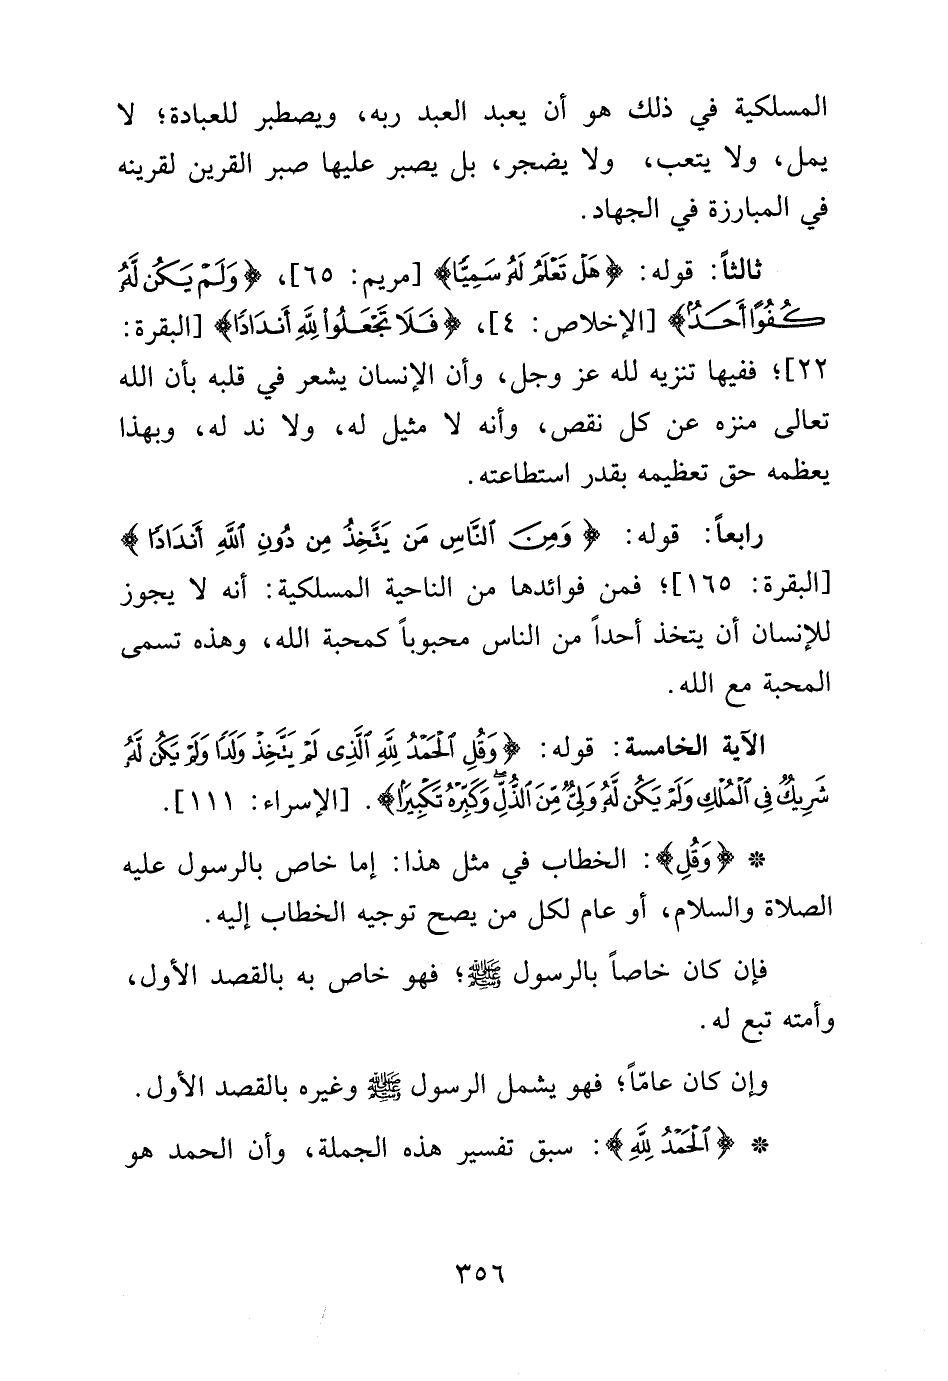 المسلكية في ذلك هو أن يعبد العبد ربه، ويصطبر للعبادة؛ لا
يمل، ولا يتعب، ولا يضجر، بل يصبر عليها صبر القرين لقرينه
في المبارزة في الجهاد.
ثالثاً: قوله: ﴿هَلْ تَعْلَمُ لَهُ سَمِيًّا﴾ [مريم: ٦٥]، ﴿وَلَمْ يَكُن لَّهُ
كُفُوًا أَحَدٌ﴾ [الإخلاص: ٤]، ﴿فَلَا تَجْعَلُوا۟ لِلَّهِ أَندَادًا﴾ [البقرة:
٢٢]؛ ففيها تنزيه لله عز وجل، وأن الإنسان يشعر في قلبه بأن الله
تعالى منزه عن كل نقص، وأنه لا مثيل له، ولا ند له، وبهذا
يعظمه حق تعظيمه بقدر استطاعته.
رابعاً: قوله: ﴿وَمِنَ ٱلنَّاسِ مَن يَتَّخِذُ مِن دُونِ ٱللَّهِ أَندَادًا﴾
[البقرة: ١٦٥]؛ فمن فوائدها من الناحية المسلكية: أنه لا يجوز
للإنسان أن يتخذ أحداً من الناس محبوباً كمحبة الله، وهذه تسمى
المحبة مع الله.
الآية الخامسة: قوله: ﴿وَقُلِ ٱلْحَمْدُ لِلَّهِ ٱلَّذِى لَمْ يَتَّخِذْ وَلَدًا وَلَمْ يَكُن لَّهُ
شَرِيكٌ فِى ٱلْمُلْكِ وَلَمْ يَكُن لَّهُ وَلِىٌّ مِّنَ ٱلذُّلِّ ۖ وَكَبِّرْهُ تَكْبِيرًا﴾. [الإسراء: ١١١].
* ﴿وَقُلِ﴾: الخطاب في مثل هذا: إما خاص بالرسول عليه
الصلاة والسلام، أو عام لكل من يصح توجيه الخطاب إليه.
فإن كان خاصاً بالرسول ﷺ؛ فهو خاص به بالقصد الأول،
وأمته تبع له.
وإن كان عامّاً؛ فهو يشمل الرسول ﷺ وغيره بالقصد الأول.
* ﴿ٱلْحَمْدُ لِلَّهِ﴾: سبق تفسير هذه الجملة، وأن الحمد هو
٣٥٦